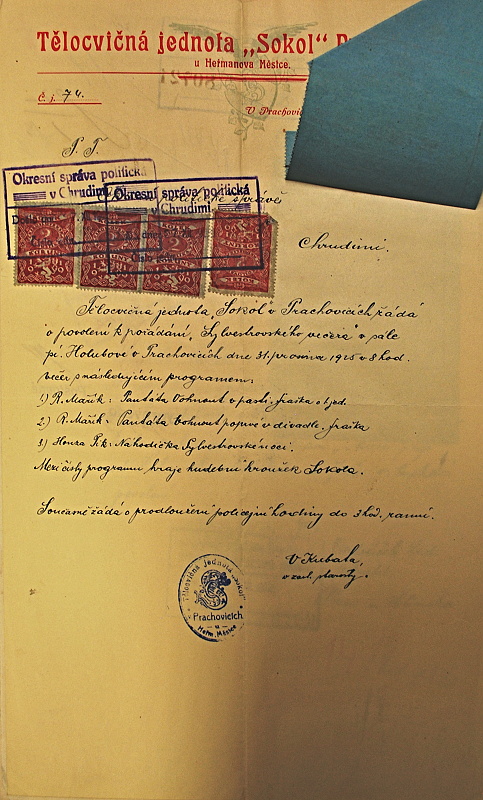 Tělocvičná jednota „Sokol“
u Heřmanova Městce.
Č. j. 74.
V Prachovi
P. T.
Okresní správa politická
v Chrudimi
Okresní správa politická
v Chrudimi
politické správě
Chrudimi.
Tělocvičná jednota „Sokol“ v Prachovicích žádá
o povolení k pořádání „Sylvestrovského večera“ v sále
pí. Holubové v Prachovicích dne 31. prosince 1925 v 8 hod.
večer s následujícím programem:
1) R. Mařík: Pantáta Vohnout v pasti, fraška o 1 jed.
2) R. Mařík: Pantáta Vohnout poprvé v divadle, fraška
3) Honza : Nahodička Sylvestrovské noci.
Mezi čísly programu hraje hudební kroužek Sokola.
Současně žádá o prodloužení policejní hodiny do 3 hod. ranní.
V Kubala,
v zast. starosty.
Tělocvičná jednota „Sokol“
v
Prachovicích
u
Heřm. Městce